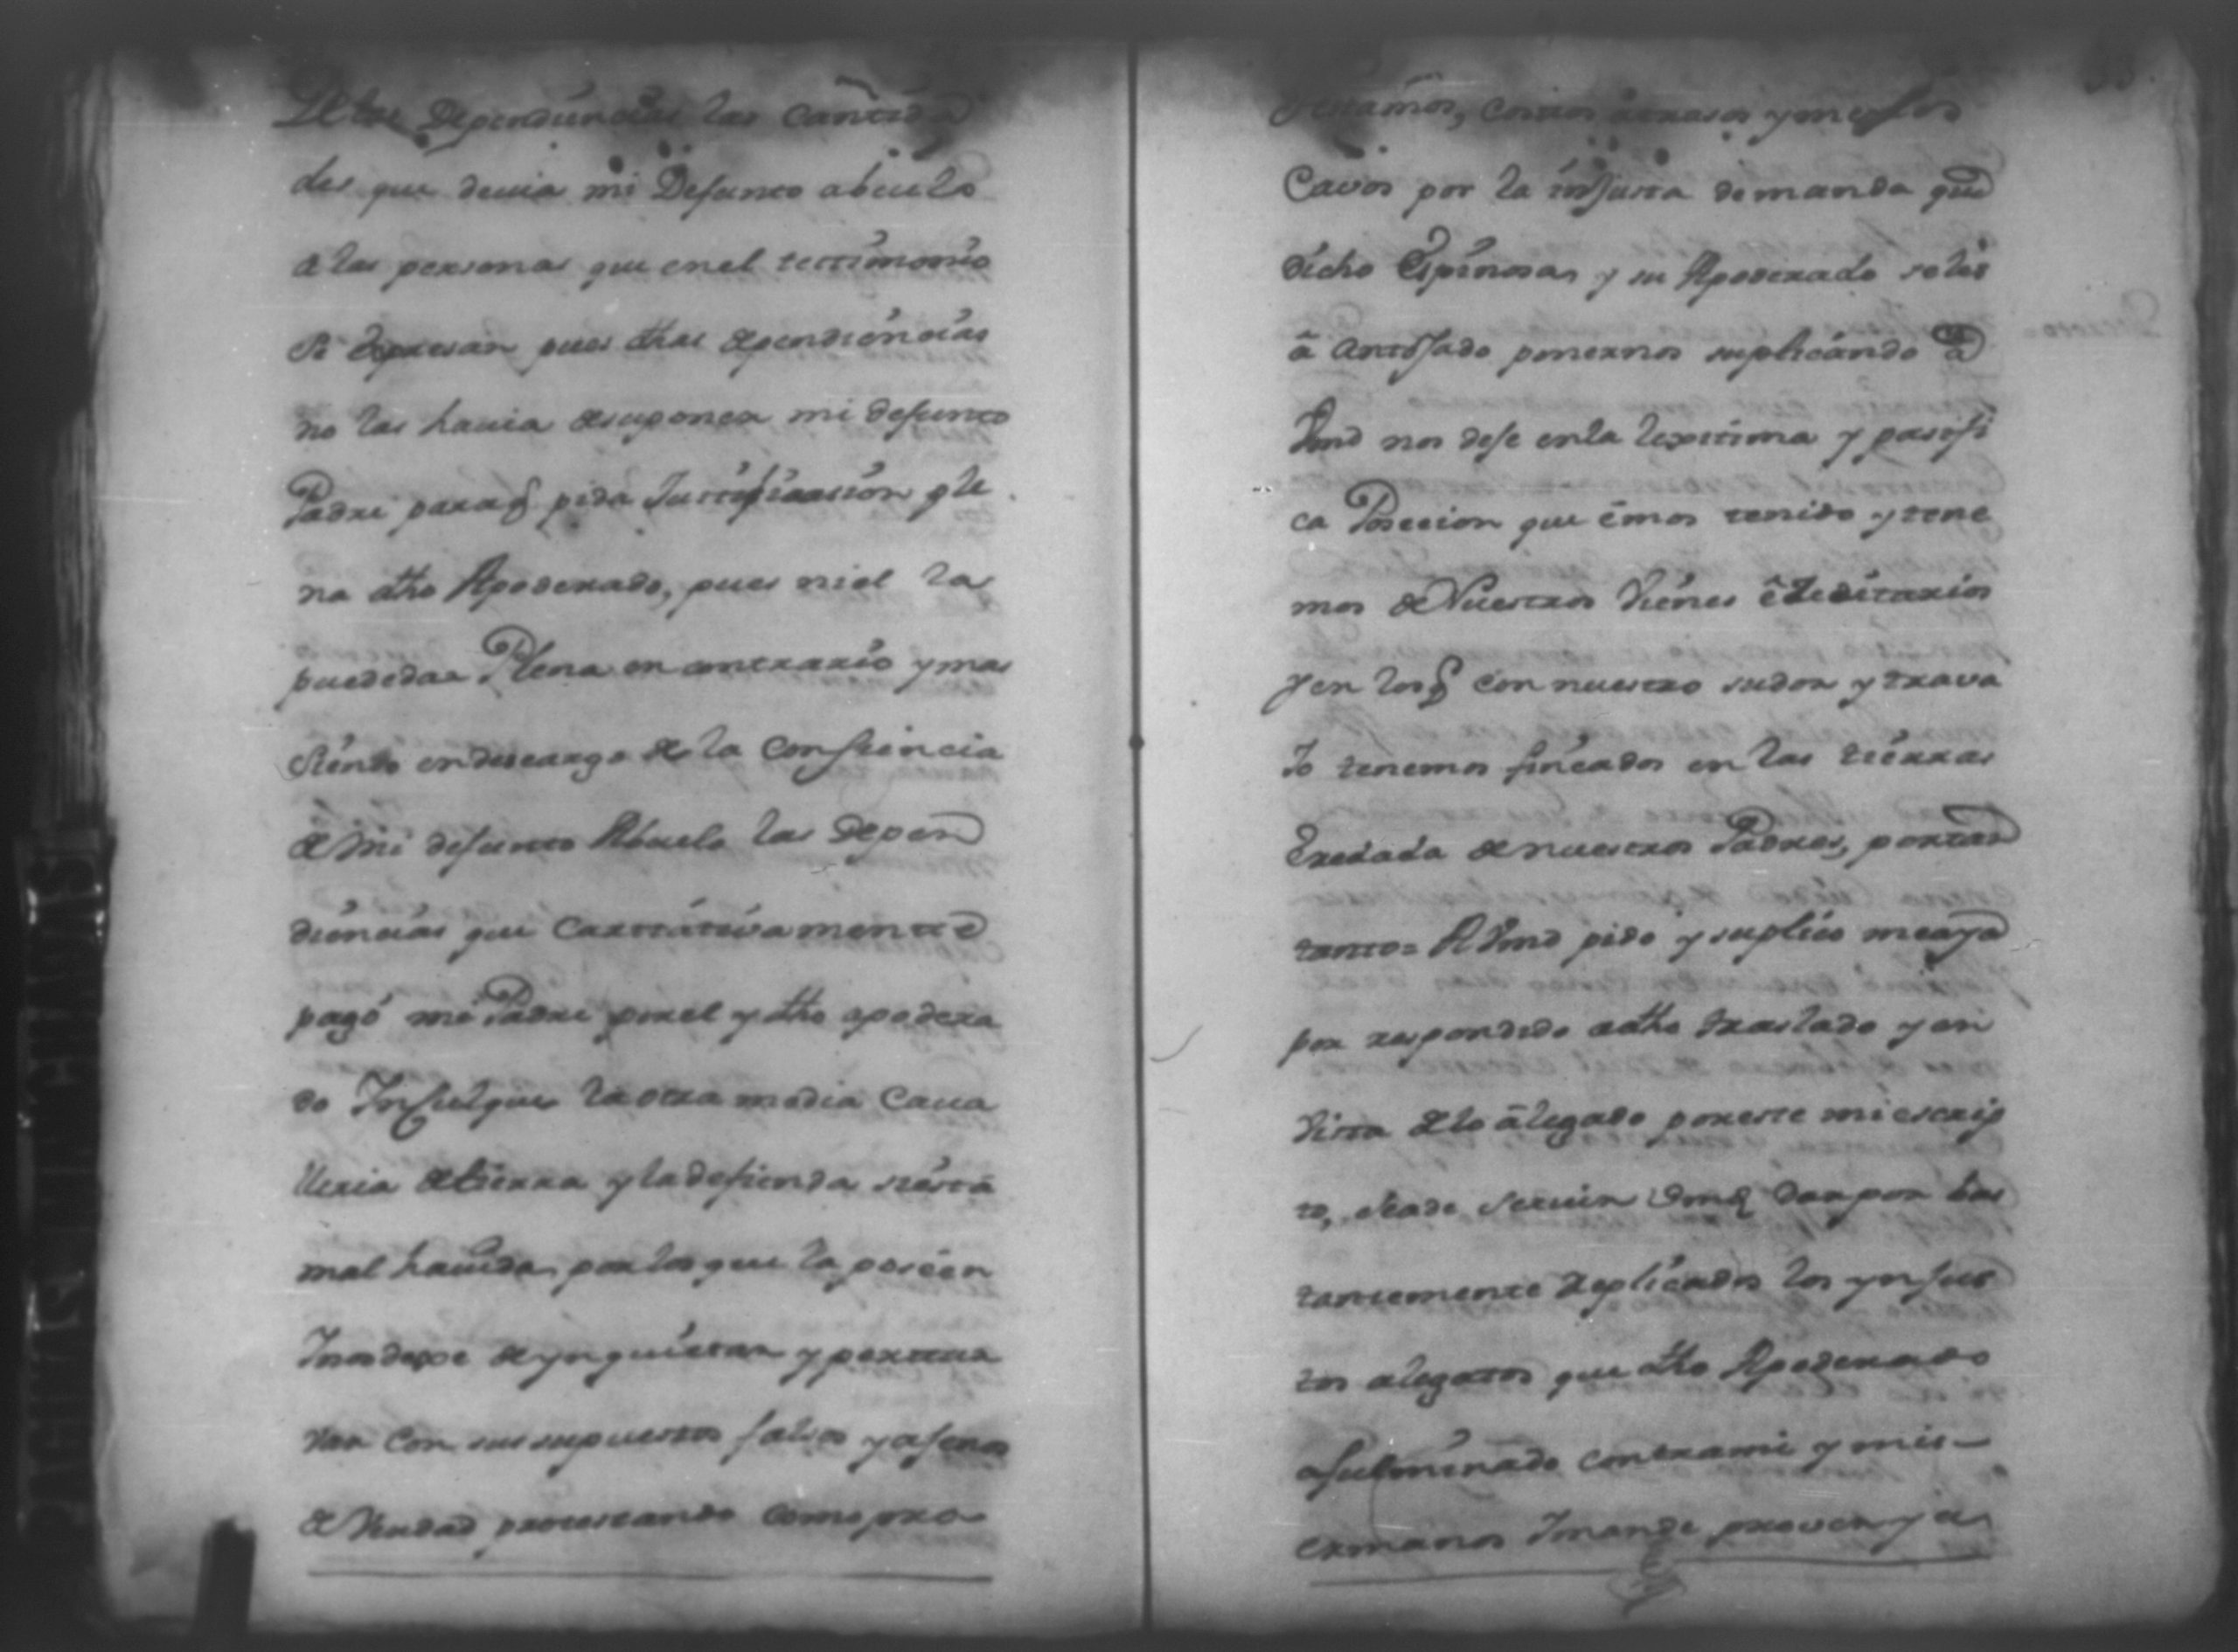 De las Dependiencias las cantida
des que devia mi Defunto abuelo
a las personas que en el testimonio
se Expresan pues dhas dependiencias
no las havia de suponer mi defunto
Padre para q̃ pida Justificasion ple
na dho Apoderado, pues ni el la
puede dar Plena en contrario y mas
siendo en descargo de la Consiencia
de Mi defunto Abuelo las Depen
diencias que Caritativamente
pagó mi Padre por el y dho apodera
do que la otra media Cava
lleria de tierra y la defienda si está
mal havida por los que la poseen
I nos dexe de ynquietar y pertur
var con sus supuestos falsos y ajenos
de Verdad protestando como pro
testamos, costos atrasos y
Cavos por la injusta demanda que
dicho Espinosa y su Apoderado se les
â antojado ponernos suplicando â
Vmd nos deje en la lexitima y pasifi
ca Posecion que êmos tenido y tene
mos de Nuestros Vienes êreditarios
y en los q̃ con nuestro sudor y trava
Jo tenemos fincados en las tierras
Eredada de nuestros Padres, por tan
tanto= A Vmd pido y suplico me aya
por respondido a dho traslado y en
Vista de lo âlegado por este mi escrip
to, se ade servir Vmd dar por bas
tantemente replicados los ynjus
tos alegatos que dho Apoderado
a fulminado contra mi y mis
ermanos I mande prover y a